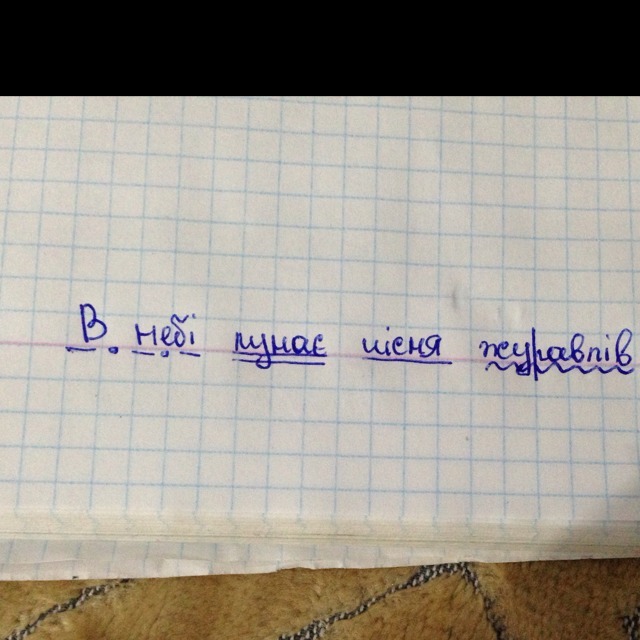 В небі лунає пісня журавлів